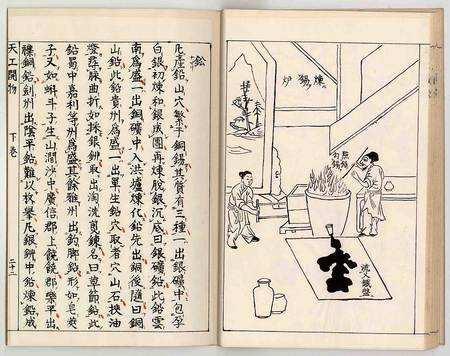 煉錫炉
點鉛
勾錫
流入鐵盤
鈆
凡產鉛山穴繁于銅錫其質有三種一出銀礦中包孕
白銀初煉和銀成團再煉脫銀沉底曰銀礦鉛此鉛雲
南爲盛一出銅礦中入洪爐煉化鉛先出銅後隨曰銅
山鉛此鉛貴州爲盛一出單生鉛穴取者穴山石挾油
燈尋脉曲折如採銀鉚取出淘洗煎鍊名曰草節鉛此
鉛蜀中嘉利等州爲盛其餘雅州出釣脚鉛形如皂莢
子又如蝌斗子生山澗沙中廣信郡上饒饒郡樂平出
雜銅鉛劍州出陰平鉛難以枚舉凡銀鉚中鉛煉鉛成
天工開物 下卷 二十二